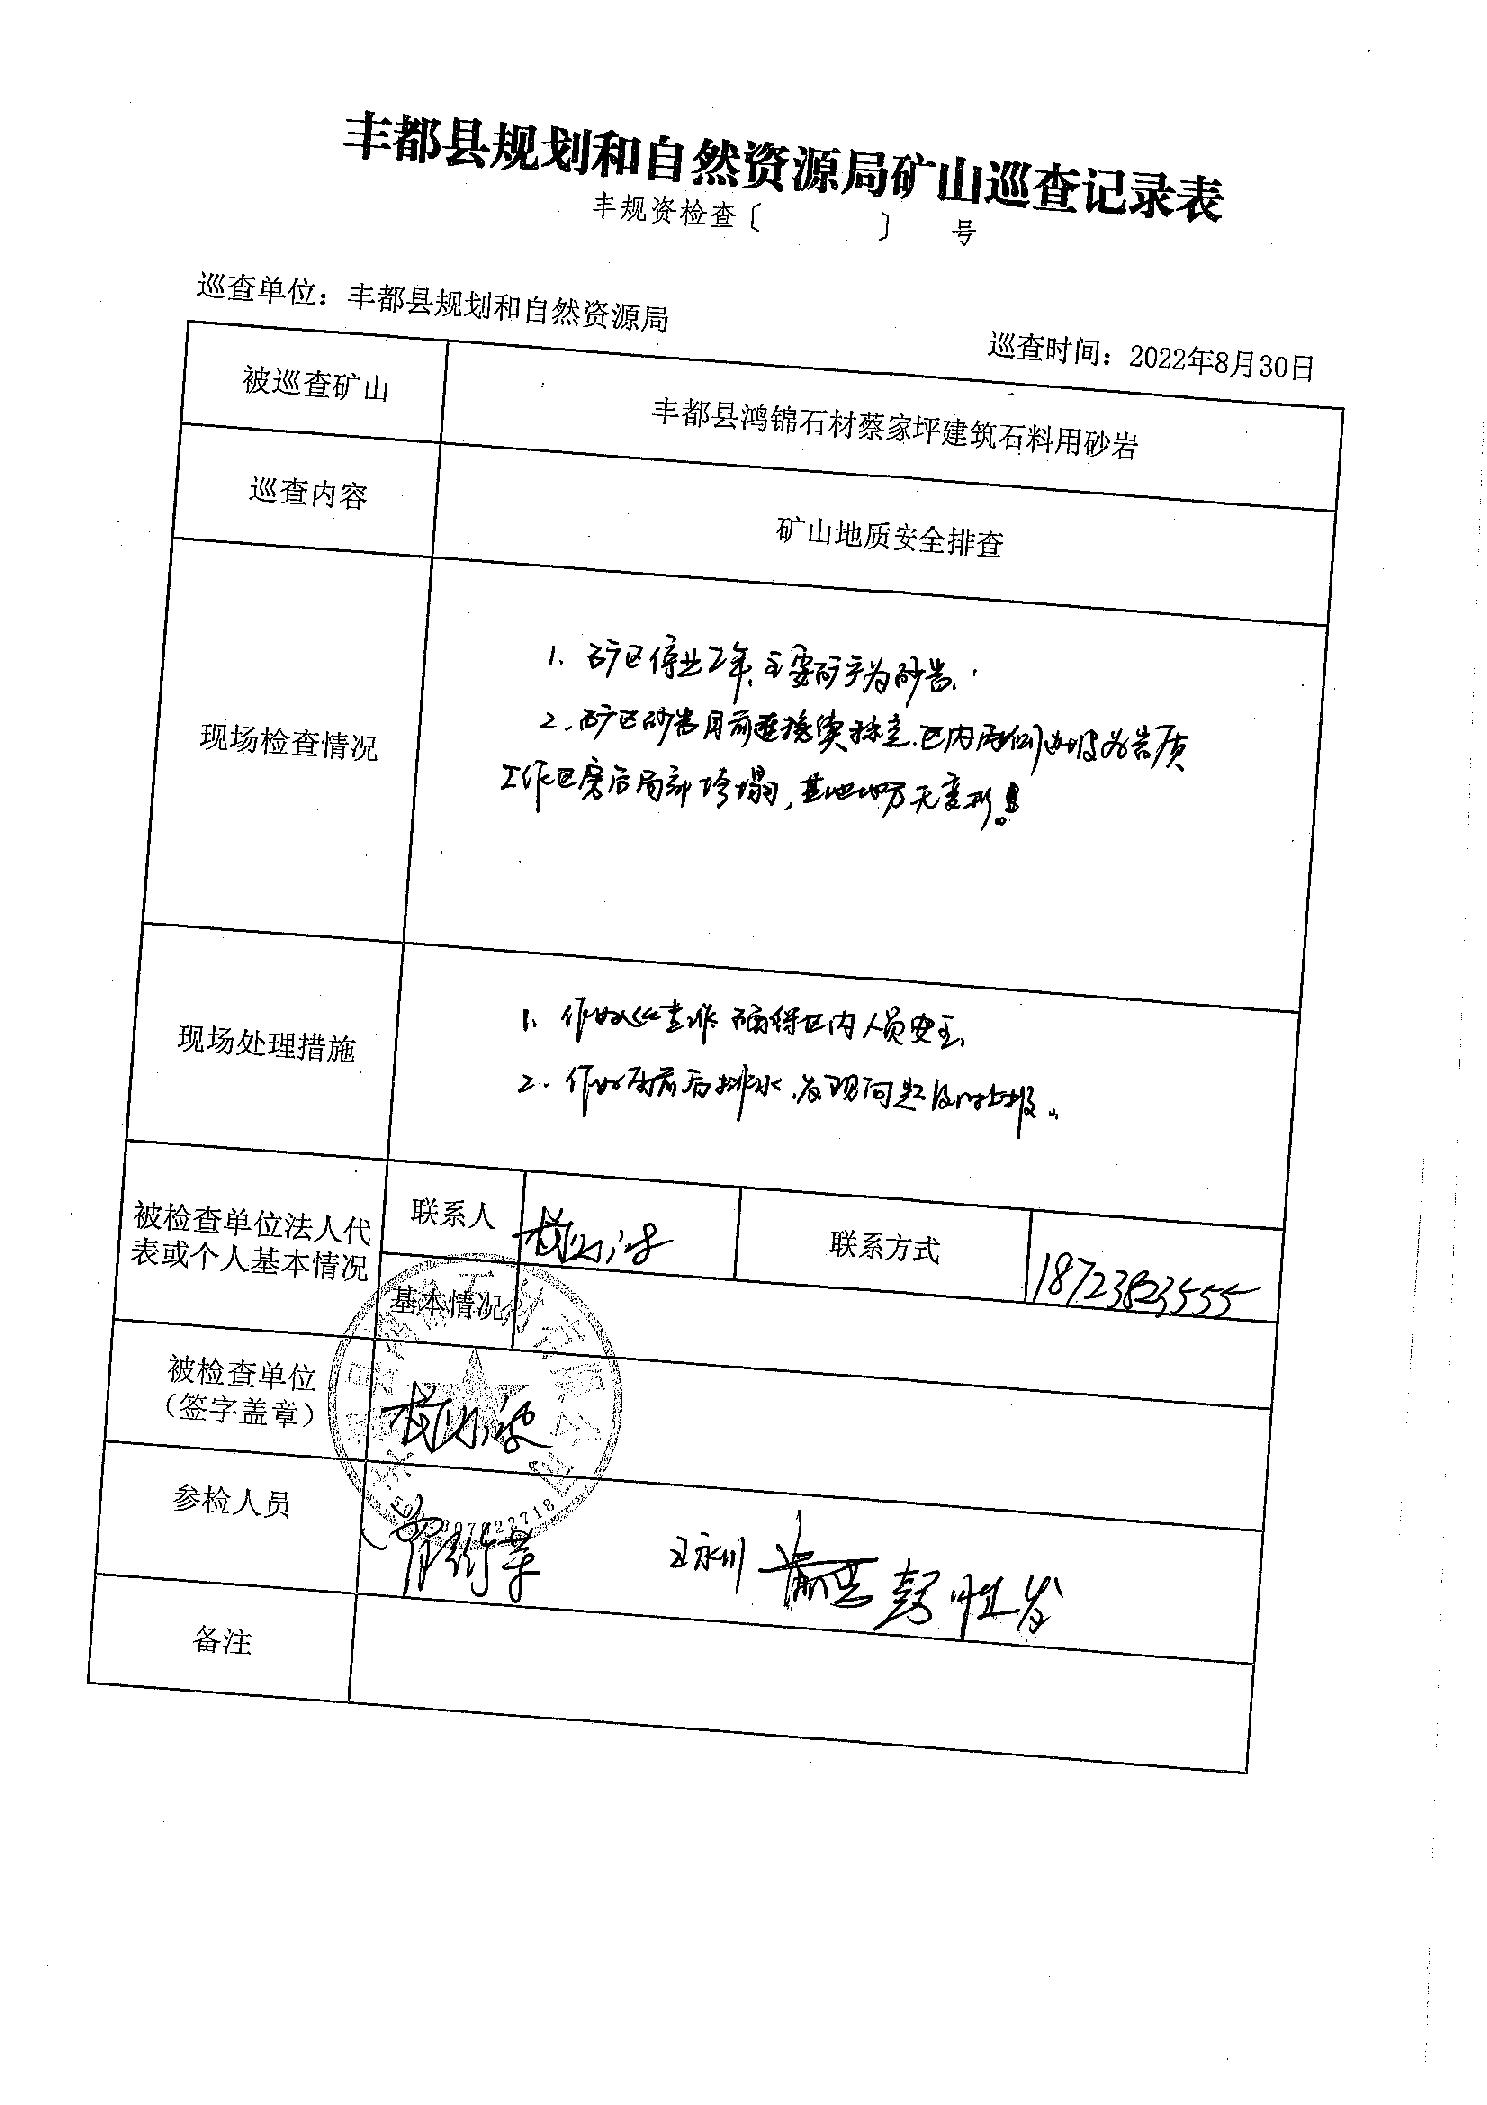 丰都县规划和自然资源局矿山巡查记录表
丰规资检查〔 〕 号
巡查单位：丰都县规划和自然资源局
巡查时间：2022年8月30日
被巡查矿山
丰都县鸿锦石材蔡家坪建筑石料用砂岩
巡查内容
矿山地质安全排查
现场检查情况
1、矿区停业2年、主要矿产为砂岩、
2、矿区砂岩目前连续稳定、区内两侧边坡为岩质
工作区房后局部垮塌，基地地方无变形！
现场处理措施
1、作好巡查工作 确保区内人员安全、
2、作好房前后排水、发现问题及时上报。
被检查单位法人代
表或个人基本情况
联系人
联系方式
18723823555
基本情况
被检查单位
（签字盖章）
参检人员
王永川
备注